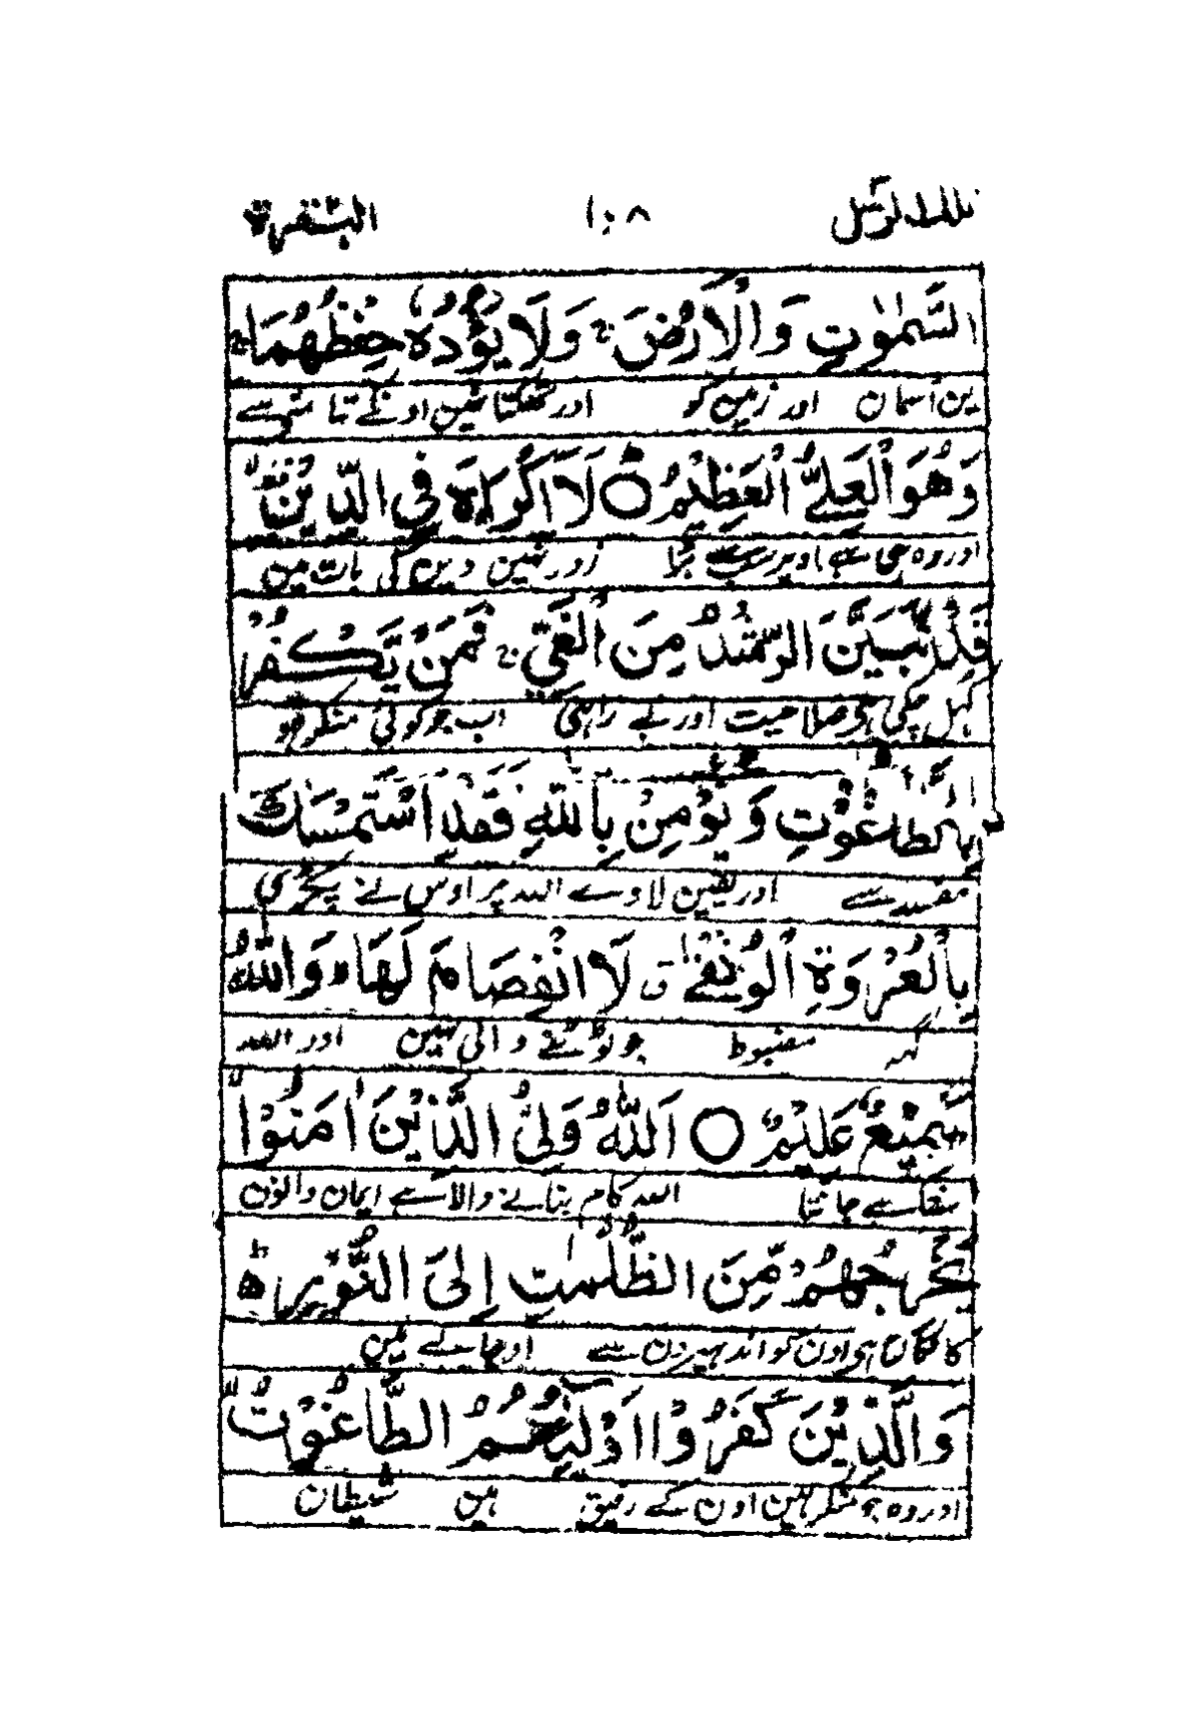 تلك الرسل ١٠٨ البقرة
السَّمٰوٰتِ وَالْاَرْضَ ۚ وَلَا يَؤُدُهٗ حِفْظُهُمَا ۚ
ین آسمان اور زمین کو اور تھکتا نہیں اونکے تھامنے سے
وَهُوَ الْعَلِيُّ الْعَظِيْمُ ○ لَا اِكْرَاهَ فِي الدِّيْنِ
اور وہ ہی ہے اوپر سب سے بڑا زور نہیں دین کی بات مین
قَدْ تَّبَيَّنَ الرُّشْدُ مِنَ الْغَيِّ ۚ فَمَنْ يَّكْفُرْ
کہل چکی ہی صلاحیت اور بے راہی اب جو کوئی منکر ہو
بِالطَّاغُوْتِ وَيُؤْمِنْ بِاللّٰهِ فَقَدِ اسْتَمْسَكَ
مفسد سے اور یقین لاوے اللہ پر اوس نے پکڑی
بِالْعُرْوَةِ الْوُثْقٰى ق لَا انْفِصَامَ لَهَا ۭ وَاللّٰهُ
گہہ مضبوط جو ٹوٹنے والی نہین اور اللہ
سَمِيْعٌ عَلِيْمٌ ○ اَللّٰهُ وَلِيُّ الَّذِيْنَ اٰمَنُوْا
سنتا ہے جانتا اللہ کام بنانے والا ہے ایمان والون
يُخْرِجُهُمْ مِّنَ الظُّلُمٰتِ اِلَى النُّوْرِ ۥۭ
کا نکالتا ہی اون کو اندہیرون سے اوجالے مین
وَالَّذِيْنَ كَفَرُوْا اَوْلِيٰٓـــُٔهُمُ الطَّاغُوْتُ
اور وہ جو منکر ہین اون کے رفیق ہین شیطان